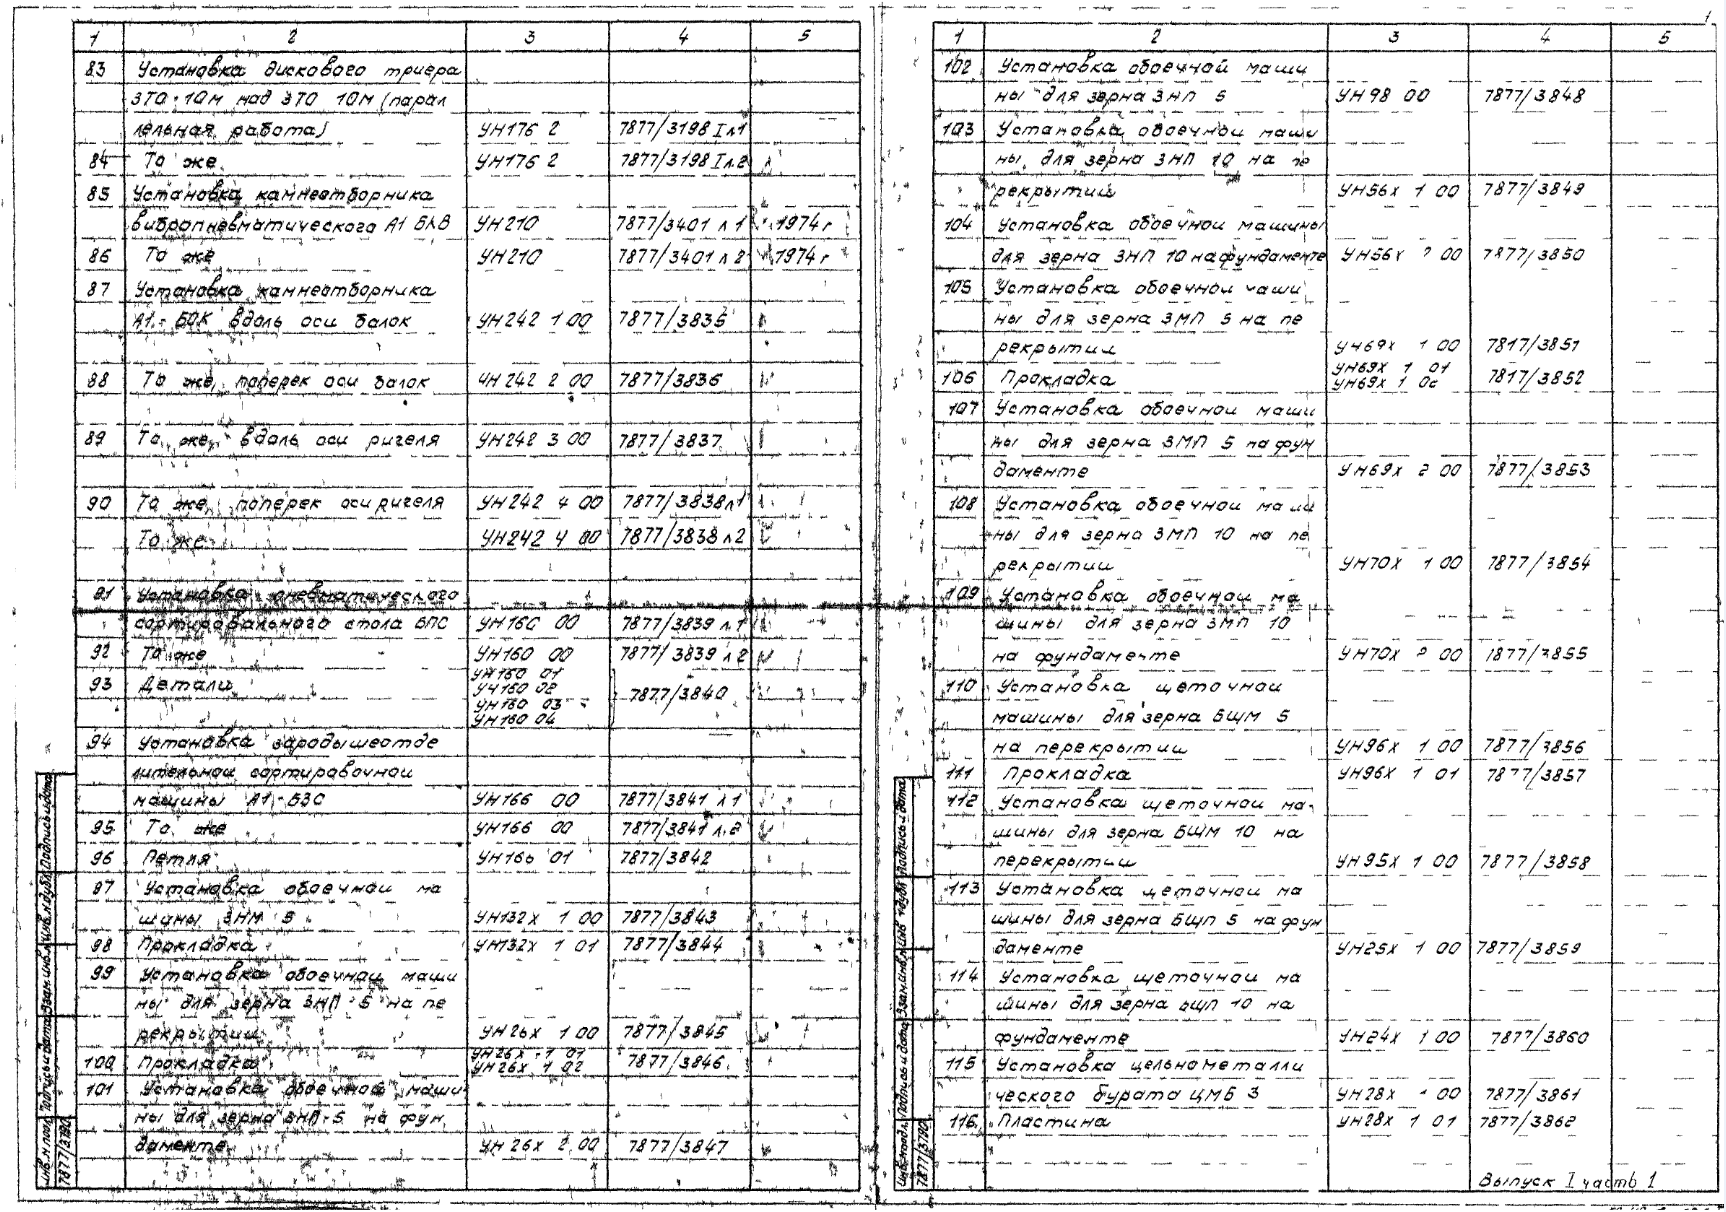 1 2 3 4 5
83 Установка дискового триера
ЗТО-10М над ЗТО 10М (парал
лельная работа) УН176 2 7877/3198 I л1
84 То же УН176 2 7877/3198 I л.2
85 Установка камнеотборника
вибропневматического А1 БКВ УН210 7877/3401 л 1 1974г
86 То же УН210 7877/3401 л 2 1974г
87 Установка камнеотборника
А1-БОК вдоль оси балок УН242 1 00 7877/3835
88 То же, поперек оси балок УН242 2 00 7877/3836
89 То же, вдоль оси ригеля УН242 3 00 7877/3837
90 То же, поперек оси ригеля УН242 4 00 7877/3838 л1
То же УН242 4 00 7877/3838 л2
91 Установка пневматического
сортировального стола БПС УН160 00 7877/3839 л.1
92 То же УН160 00 7877/3839 л 2
93 Детали УН160 01
УН160 02 7877/3840
УН160 03
УН160 04
94 Установка зародышеотде
лительной сортировочной
машины А1-БЗС УН166 00 7877/3841 л 1
95 То же УН166 00 7877/3841 л.2
96 Петля УН166 01 7877/3842
97 Установка обоечной ма
шины ЗНМ 5 УН132х 1 00 7877/3843
98 Прокладка УН132х 1 01 7877/3844
99 Установка обоечной маши
ны для зерна ЗНП-5 на пе
рекрытии УН26х 1 00 7877/3845
100 Прокладка УН26х 1 01
УН26х 1 02 7877/3846
101 Установка обоечной маши
ны для зерна ЗНП-5 на фун
даменте УН26х 2.00 7877/3847
Инв.N подл. Подпись и дата Взам.инв.N Инв.N дубл. Подпись и дата
7877/3780
1
1 2 3 4 5
102 Установка обоечной маши
ны для зерна ЗНП 5 УН98 00 7877/3848
103 Установка обоечной маши
ны для зерна ЗНП 10 на пе
рекрытии УН56х 1 00 7877/3849
104 Установка обоечной машины
для зерна ЗНП 10 на фундаменте УН56х 2 00 7877/3850
105 Установка обоечной маши
ны для зерна ЗМП 5 на пе
рекрытии УН69х 1 00 7817/3851
106 Прокладка УН69х 1 01
УН69х 1 02 7817/3852
107 Установка обоечной маши
ны для зерна ЗМП 5 на фун
даменте УН69х 2 00 7877/3853
108 Установка обоечной маши
ны для зерна ЗМП 10 на пе
рекрытии УН70х 1 00 7877/3854
109 Установка обоечной ма
шины для зерна ЗМП 10
на фундаменте УН70х 2 00 7877/3855
110 Установка щеточной
машины для зерна БЩМ 5
на перекрытии УН96х 1 00 7877/3856
111 Прокладка УН96х 1 01 7877/3857
112 Установка щеточной ма-
шины для зерна БЩМ 10 на
перекрытии УН95х 1 00 7877/3858
113 Установка щеточной ма
шины для зерна БЩП 5 на фун
даменте УН25х 1 00 7877/3859
114 Установка щеточной ма
шины для зерна БЩП 10 на
фундаменте УН24х 1 00 7877/3860
115 Установка цельнометалли
ческого бурата ЦМБ 3 УН28х 00 7877/3861
116 Пластина УН28х 1 01 7877/3862
Инв.N подл. Подпись и дата Взам.инв.N Инв.N дубл. Подпись и дата
7877/3780
Выпуск I часть 1